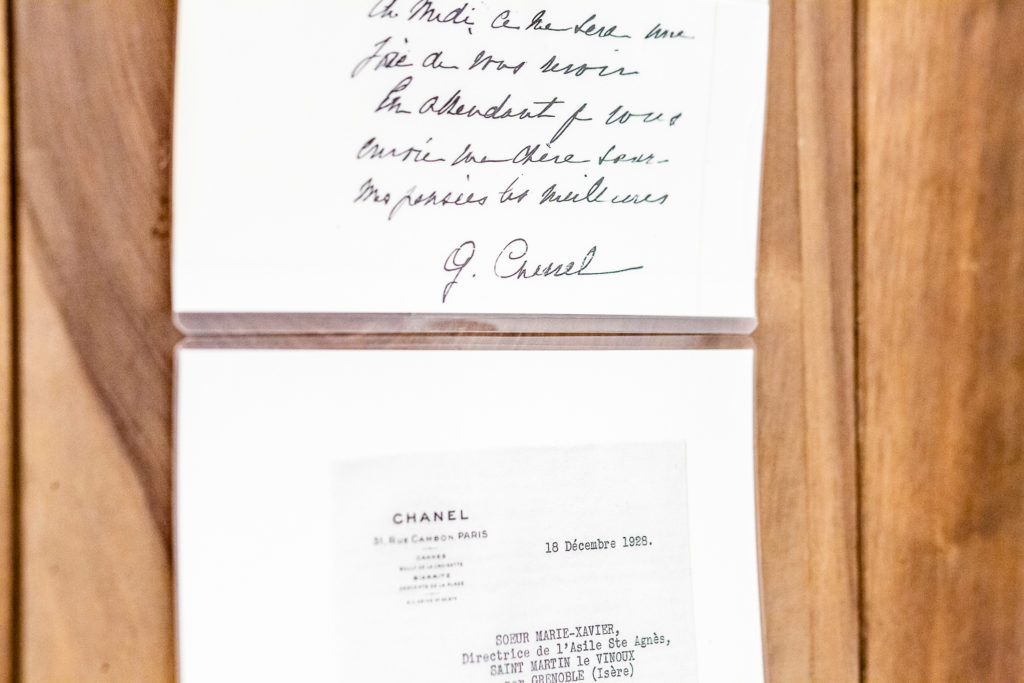 du Midi, ce me sera une
Joie de vous revoir
En attendant je vous
envoie ma chère soeur
mes pensées les meilleures
G. Chanel
CHANEL
31, RUE CAMBON PARIS
CANNES
BOULD DE LA CROISETTE
BIARRITZ
DESCENTE DE LA PLAGE
18 Décembre 1928.
SOEUR MARIE-XAVIER,
Directrice de l'Asile Ste Agnès,
SAINT MARTIN le VINOUX
par GRENOBLE (Isère)